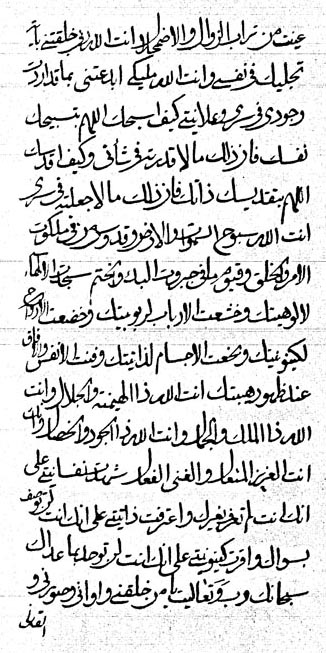 عنت من تراب الزوال والاضمحلال وانت الله ربي خلقتني بآية
تجليك في نفسي وانت الله مليكي ابدعتني بما قد اردت
وجودي في سري وعلانيتي كيف اسبحك اللهم بتسبيحك
نفسك فان ذلك ما لا قدرته في شأني وكيف اقدسك
اللهم بتقديسك ذاتك فان ذلك ما لا جعلته في سري
انت الله سبوح السموات والارض وقدوس من في ملكوت
الامر والخلق وقيوم من في جبروت البدء والختم سجدت الالهاء
لالوهيتك وخشعت الارباب لربوبيتك وخضعت الارواح
لكينونيتك وبخعت الاجسام لذاتيتك وفنت الانفس والافاق
عند ظهور هيبتك انت الله ذا الهيمنة والجلال وانت
الله ذا الملك والجمال وانت الله ذا الجود والخصال وانك
انت العزيز المتعال والغني الفعال شهدت نفسانيتي على
انك انت لم تعرف بغيرك واعترفت ذاتيتي على انك انت لن توصف
بسواك واقرت كينونيتي على انك انت لن توحد بما عداك
سبحانك رب وتعاليت امن خلقني واواني وصورني و
اتقاني